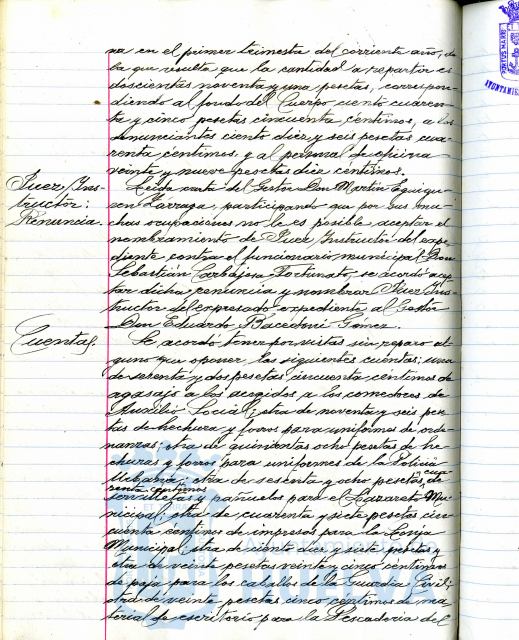 na en el primer trimestre del corriente año, de
la que resulta que la cantidad a repartir es
doscientas noventa y una pesetas, correspon-
diendo al fondo del Cuerpo ciento cuaren-
ta y cinco pesetas cincuenta céntimos, a los
denunciantes ciento diez y seis pesetas cua-
renta céntimos, y al personal de oficina
veinte y nueve pesetas diez céntimos.
Juez Ins-
tructor:
Renuncia.
Leída carta del Gestor Don Martín Eguigu-
ren Zarraga, participando que por sus mu-
chas ocupaciones no le es posible aceptar el
nombramiento de Juez Instructor del expe-
diente contra el funcionario municipal Don
Sebastián Carbajosa Fortunato, se acordó acep-
tar dicha renuncia y nombrar Juez Ins-
tructor del expresado expediente al Gestor
Don Eduardo Bacedoni Gómez.
Cuentas.
Se acordó tener por vistas sin reparo al-
guno que oponer, las siguientes cuentas: una
de setenta y dos pesetas cincuenta céntimos de
agasajo a los acogidos a los comedores de
Auxilio Social; otra de noventa y seis pese-
tas de hechura y forros para uniformes de orde-
nanzas; otra de quinientas ocho pesetas de he-
churas y forros para uniformes de la Policía
Urbana; otra de sesenta y ocho pesetas, cua-
renta céntimos de
servilletas y pañuelos para el Lazareto Mu-
nicipal; otra de cuarenta y siete pesetas cin-
cuenta céntimos de impresos para la Lonja
Municipal; otra de ciento diez y siete pesetas y
otra de veinte pesetas veinte y cinco céntimos
de paja para los caballos de la Guardia Civil;
otra de veinte pesetas cinco céntimos de ma-
terial de escritorio para la Pescadería del
HUELVA